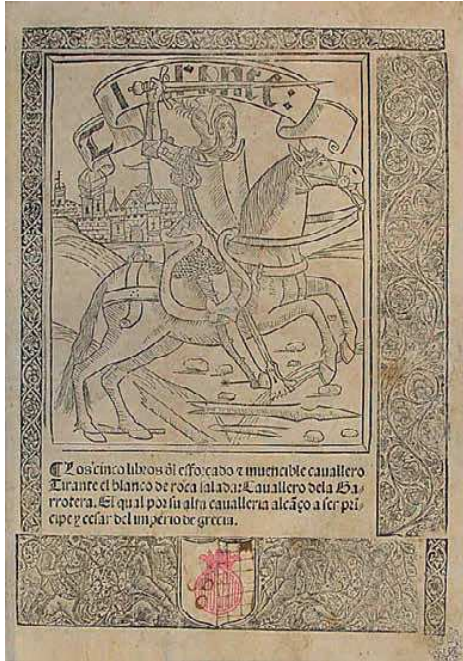 Tirante
¶Los cinco libros ďl efforçado ⁊ inuencible cauallero
Tirante el blanco de roca salada: Cauallero dela Gar-
rotera. El qual por su alta caualleria alcãço a ser prĩ-
cipe y cesar del imperio de grecia.